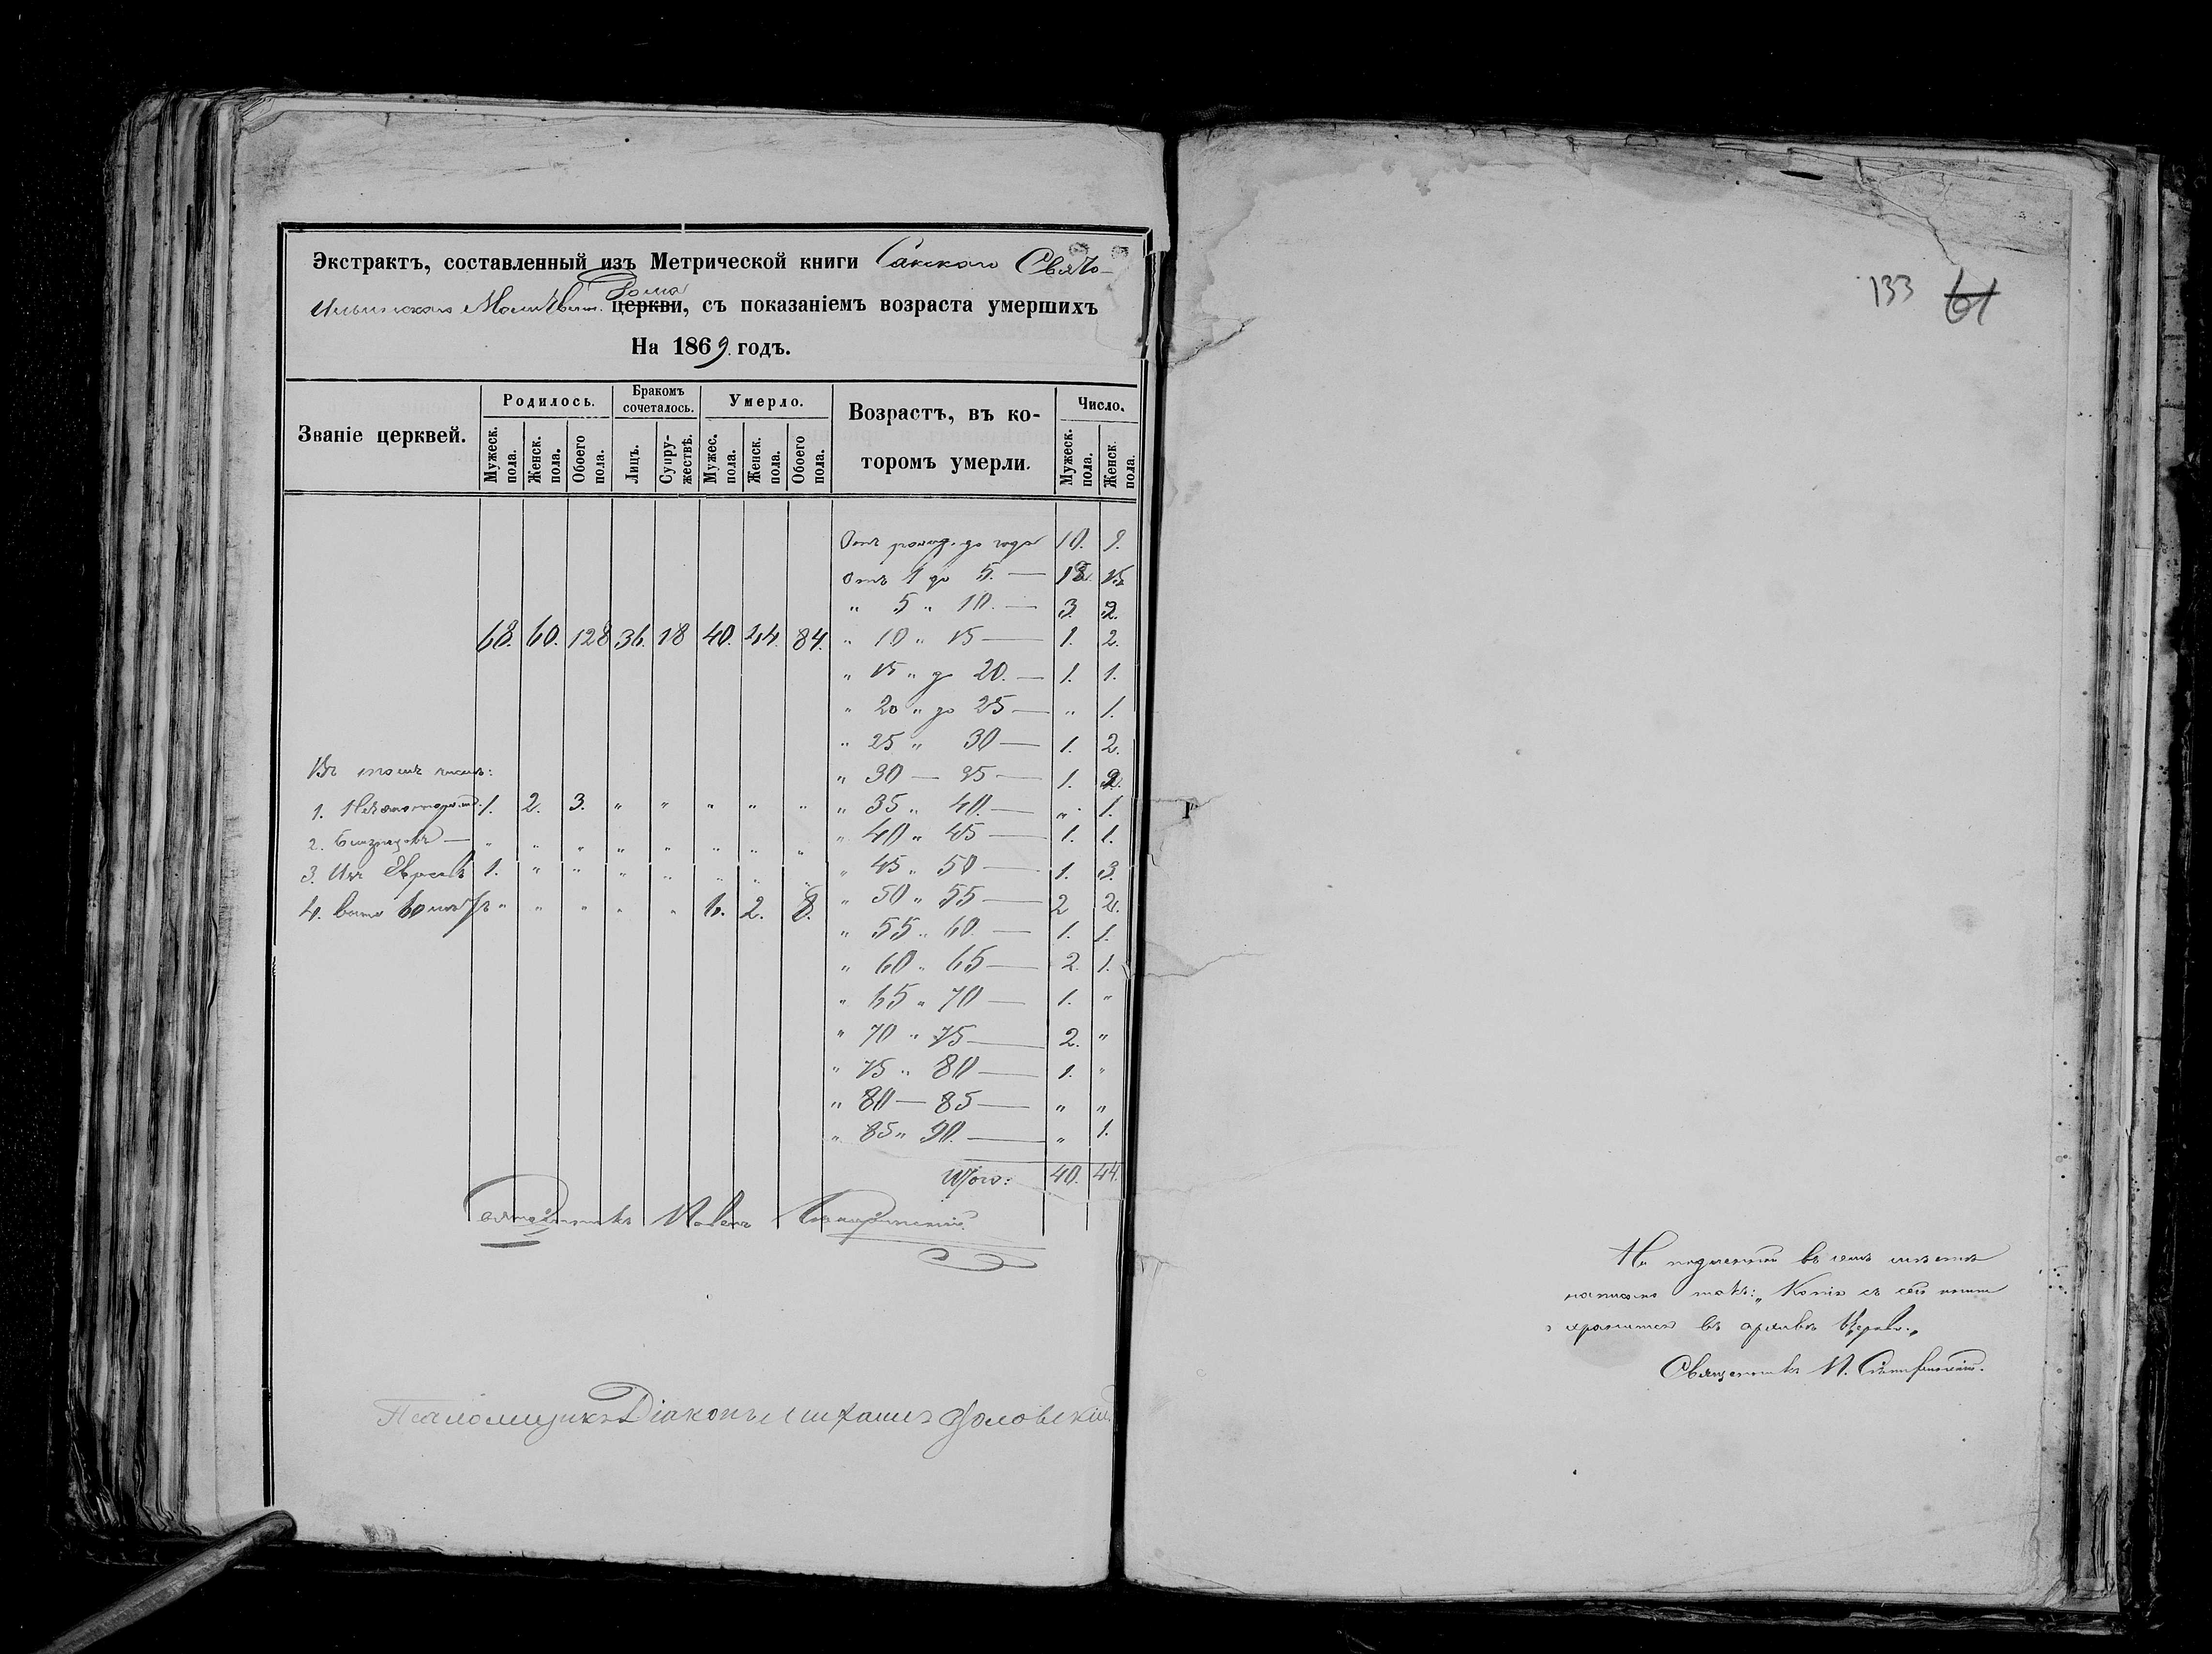 Экстрактъ, составленный изъ Метрической книги Сакскаго Свято-
Дома
Ильинскаго Молитвен. церкви, съ показаніемъ возраста умершихъ
На 1869 годъ.
Званіе церквей. Родилось. Бракомъ сочеталось. Умерло. Возрастъ, въ которомъ умерли. Число.
Мужеск. пола. Женск. пола. Обоего пола. Лицъ. Супружествъ. Мужес. пола. Женск. пола. Обоего пола. Мужеск. пола. Женск. пола.
Отъ рожд. до года 10.
Отъ 1 до 5. —
" 5 " 10. — 3. 2.
68. 60. 128 36. 18 40. 44. 84. " 10 " 15 — 1. 2.
" 15 " до 20. — 1. 1.
" 20 " до 25 — " 1.
" 25 " 30 — 1. 2.
Въ томъ числѣ: " 30 — 35 — 1. 2.
1. 1. 2. 3. " " " " " " 35 " 40. — " 1.
2. Близнецовъ — " " " " " " " " " 40 " 45 — 1. 1.
3. Изъ Евреевъ 1. " " " " " " " " 45 " 50 — 1. 3.
4. 60 " " " " " 6. 2. 8. " 50 " 55 — 2 2.
" 55 " 60. — 1. 1.
" 60 " 65 — 2. 1.
" 65 " 70 — 1. "
" 70 " 75 — 2. "
" 75 " 80 — 1. "
" 80 — 85 — " "
" 85 " 90. — " 1.
Итого: 40. 44.
Священникъ
Псаломщикъ Діаконъ
133 61
На подлинной въ семъ мѣстѣ
написано такъ: „Копія съ сей книги
хранится въ архивѣ Церкви„
Священникъ